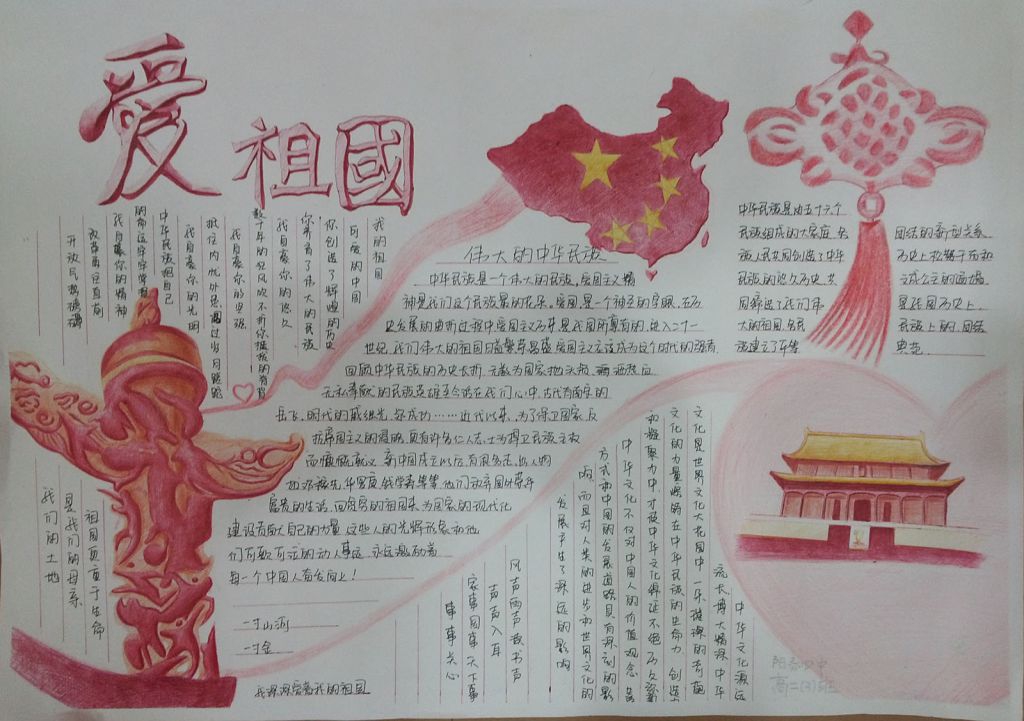 爱祖國
我的祖国
可爱的中国
你创造了辉煌的历史
你养育了伟大的民族
我自豪你的悠久
数千年的狂风吹不折你挺拔的脊背
我自豪你的坚强
抵住内忧外患闯过岁月蹉跎
我自豪你的光明
中华民族把自己
的命运牢牢掌握
我自豪你的精神
改革勇往直前
开放气势磅礴
伟大的中华民族
中华民族是一个伟大的民族，爱国主义精
神是我们这个民族最的花朵，爱国是一个神圣的字眼，在历
史发展的曲折过程中爱国主义历来是我国所尊有的，进入二十一
世纪，我们伟大的祖国日益繁荣昌盛，爱国主义应该成为这个时代的强音
回顾中华民族的历史长折，无数为国家抛头颅，洒热血
无私奉献的民族英雄至今活在我们心中，古代有南宋的
岳飞，明代的戚继光，郑成功……近代以来，为了保卫国家反
抗帝国主义的侵略，更有许多仁人志士为捍卫民族主权
而慷慨就义，新中国成立以后有很多志
邓稼先，华罗庚，钱学森等等，他们放弃国外荣华
富贵的生活，回贫穷的祖国来，为国家的现代化
建设贡献自己的力量，这些人的光辉形象和他
们可歌可泣的动人事迹，永远激励着
每一个中国人奋发向上！
一寸山河
一寸金
我深深爱着我的祖国
祖国更重于生命
是我们的母亲
我们的土地
中华民族是由五十六个
民族组成的大家庭，各
族人民共同创造了中华
民族的悠久历史，共
同缔造了我们伟
大的祖国，各民
族建立了平等
团结的新型关系
历史上
是我国历史上
民族上的，团结
典范
中华文化源远
流长，博大精深，中华
文化是世界文化大花园中一朵璀璨的奇葩
文化的力量熔铸在中华民族的生命力，创造力
和凝聚力中，才使中华文化得延不绝，历久弥
中华文化不仅对中国人的价值观念，
方式和中国的发展道路具有深刻的影
响，而且对人类的进步和世界文化的
发展产生了深远的影响
风声雨声读书声
声声入耳
家事国事天下事
事事关心
高二(3)班